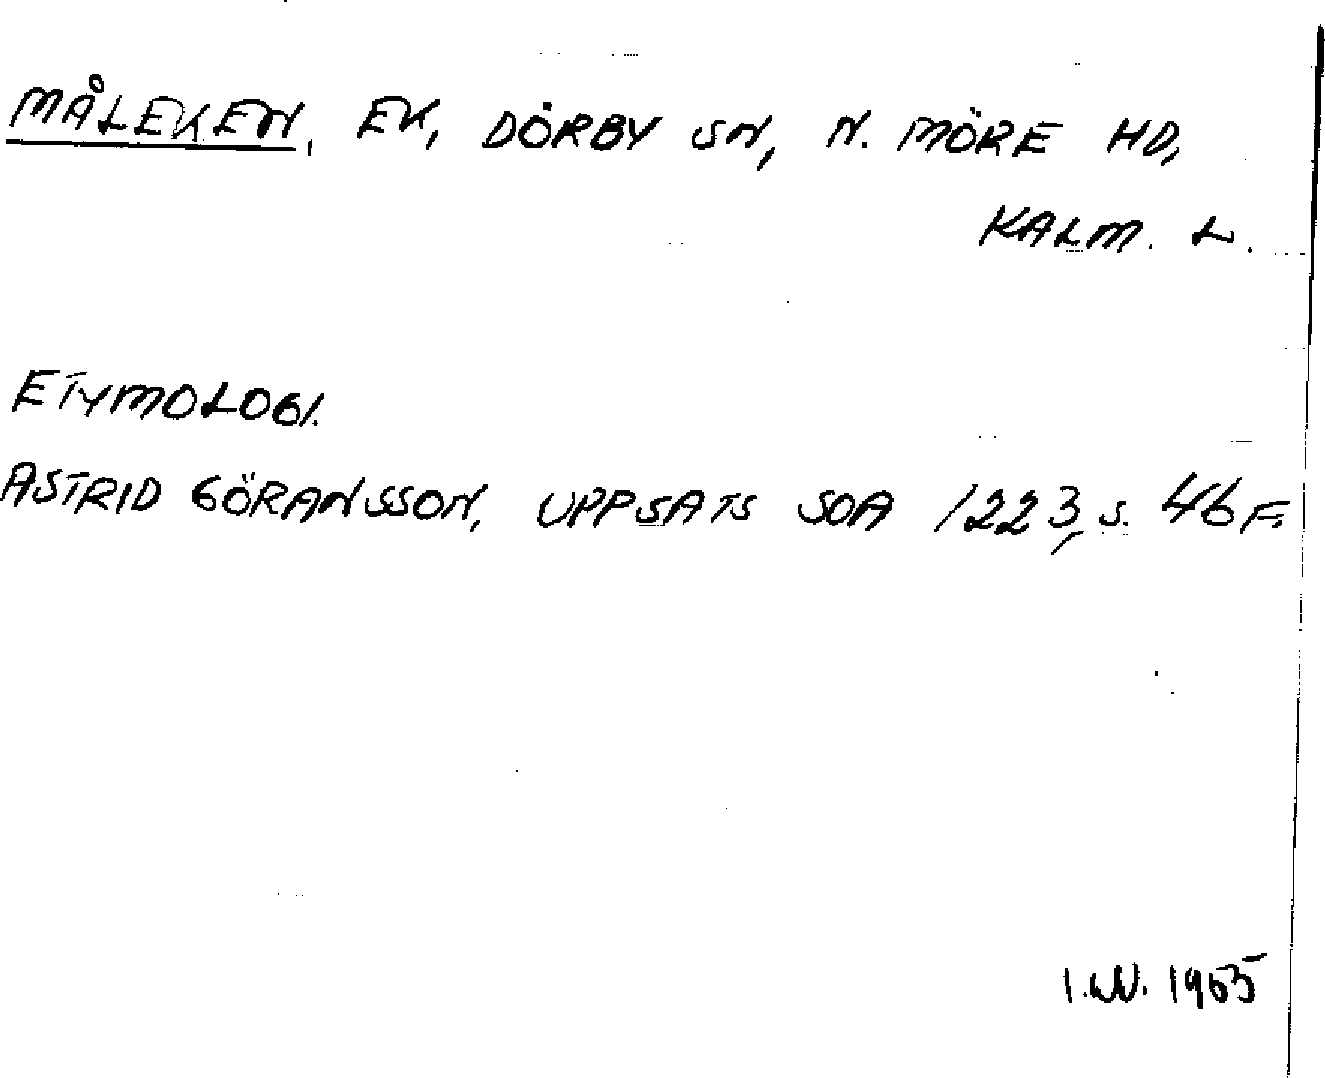 MÅLEKEN, EK, DÖRBY SN, N. MÖRE HD,
KALM. L.
ETYMOLOGI.
ASTRID GÖRANSSON, UPPSATS SOA 1223, S. 46 F.
1965